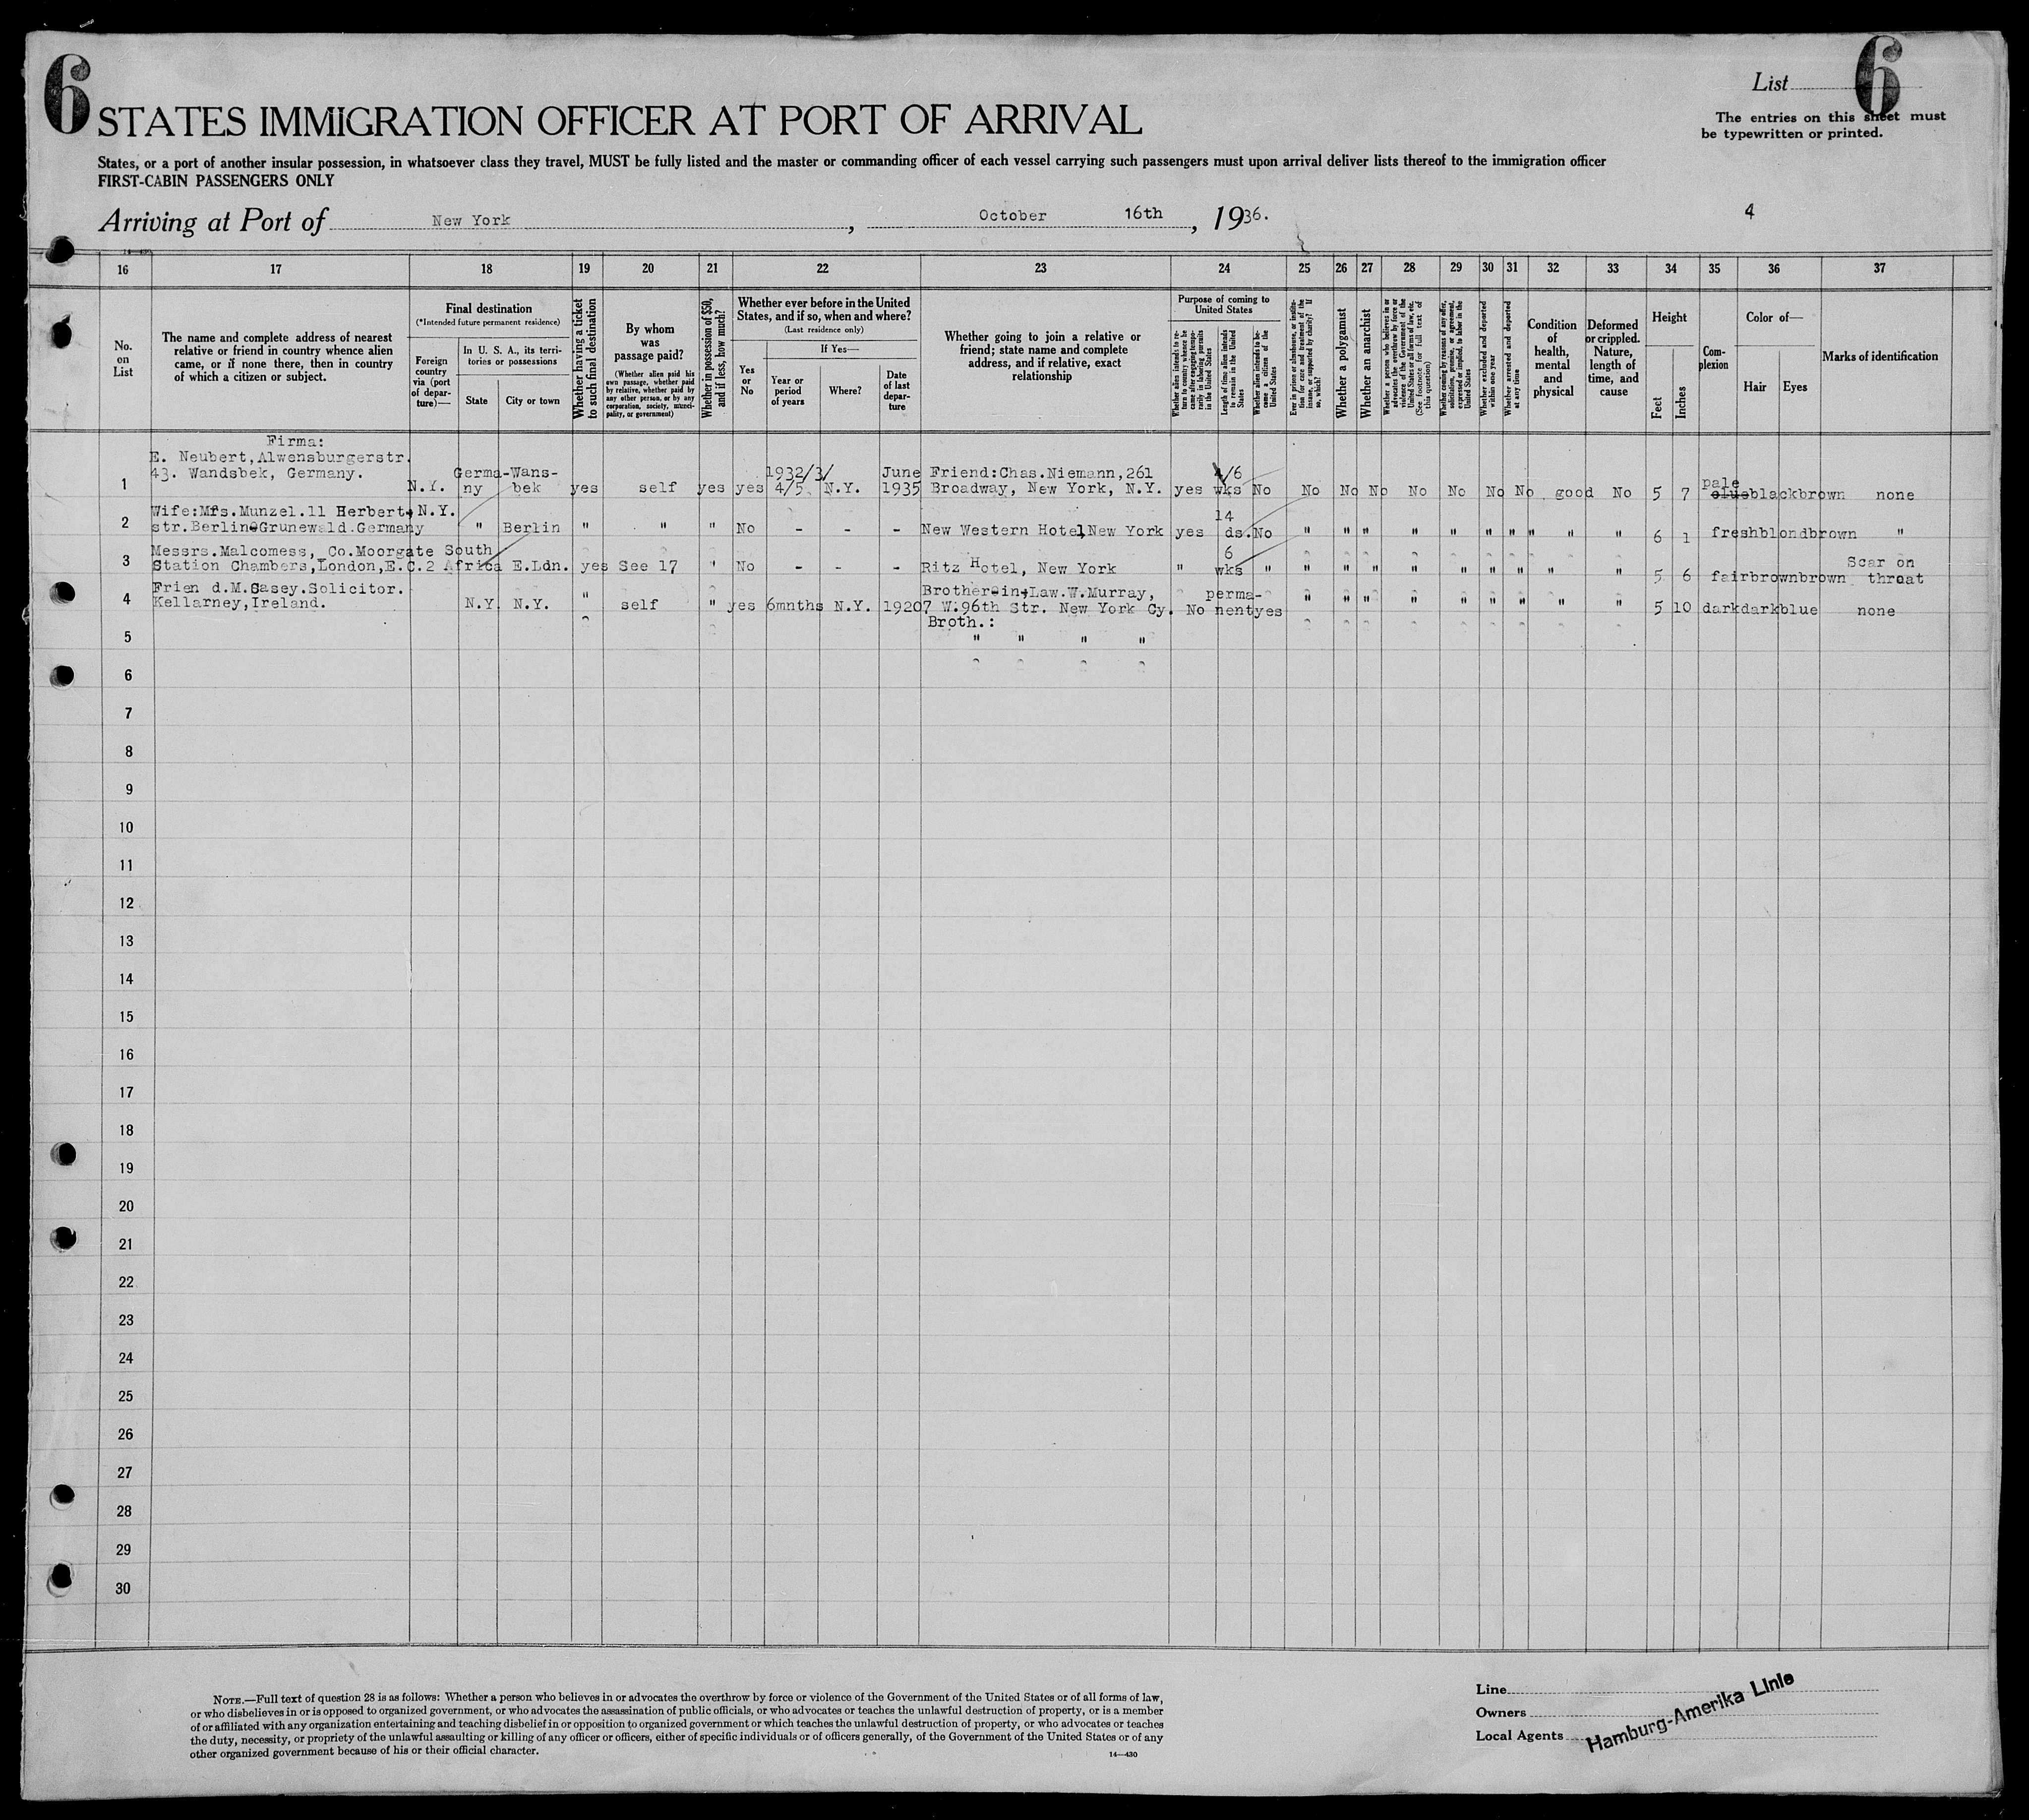 6
List 6
STATES IMMIGRATION OFFICER AT PORT OF ARRIVAL
The entries on this sheet must
be typewritten or printed.
States, or a port of another insular possession, in whatsoever class they travel, MUST be fully listed and the master or commanding officer of each vessel carrying such passengers must upon arrival deliver lists thereof to the immigration officer
FIRST-CABIN PASSENGERS ONLY
Arriving at Port of New York, October 16th, 1936.
4
16 17 18 19 20 21 22 23 24 25 26 27 28 29 30 31 32 33 34 35 36 37
No. on List
The name and complete address of nearest
relative or friend in country whence alien
came, or if none there, then in country
of which a citizen or subject.
Final destination
(*Intended future permanent residence)
Foreign country via (port of departure)—
In U. S. A., its territories or possessions
State
City or town
Whether having a ticket to such final destination
By whom was passage paid?
(Whether alien paid his own passage, whether paid by relative, whether paid by any other person, or by any corporation, society, municipality, or government)
Whether in possession of $50, and if less, how much?
Whether ever before in the United States, and if so, when and where?
(Last residence only)
Yes or No
If Yes—
Year or period of years
Where?
Date of last departure
Whether going to join a relative or
friend; state name and complete
address, and if relative, exact
relationship
Purpose of coming to United States
Whether alien intends to return to country whence he came after engaging temporarily in laboring pursuits in the United States
Length of time alien intends to remain in the United States
Whether alien intends to become a citizen of the United States
Ever in prison or almshouse, or institution for care and treatment of the insane, or supported by charity? If so, which?
Whether a polygamist
Whether an anarchist
Whether a person who believes in or advocates the overthrow by force or violence of the Government of the United States or all forms of law, etc. (See footnote for full text of this question)
Whether coming by reasons of any offer, solicitation, promise, or agreement, expressed or implied, to labor in the United States
Whether excluded and deported within one year
Whether arrested and deported at any time
Condition of health, mental and physical
Deformed or crippled. Nature, length of time, and cause
Height
Feet
Inches
Complexion
Color of—
Hair
Eyes
Marks of identification
Firma:
E. Neubert,Alwensburgerstr.
1 43. Wandsbek, Germany. N.Y. Germany Wans-bek yes self yes yes 1932/3/ 4/5 N.Y. June 1935 Friend:Chas.Niemann,261 Broadway, New York, N.Y. yes 4/6 wks No No No No No No No No good No 5 7 pale black brown none
Wife:Mfs.Munzel.11 Herbert, N.Y.
2 str.Berlin-Grunewald.Germany " Berlin " " " No - - - New Western Hotel, New York yes 14 ds. No " " " " " " " " " 6 1 fresh blond brown "
Messrs.Malcomess, Co.Moorgate South
3 Station Chambers,London,E.C.2 Africa E.Ldn. yes See 17 " No - - - Ritz Hotel, New York " 6 wks " " " " " " " " " " 5 6 fair brown brown Scar on throat
Frien d.M.Casey.Solicitor.
4 Kellarney,Ireland. N.Y. N.Y. " self " yes 6mnths N.Y. 1920 Brother-in-Law.W.Murray, 7 W.96th Str. New York Cy. No permanent yes " " " " " " " " " 5 10 dark dark blue none
Broth.:
5 " " " "
6
7
8
9
10
11
12
13
14
15
16
17
18
19
20
21
22
23
24
25
26
27
28
29
30
NOTE.—Full text of question 28 is as follows: Whether a person who believes in or advocates the overthrow by force or violence of the Government of the United States or of all forms of law,
or who disbelieves in or is opposed to organized government, or who advocates the assassination of public officials, or who advocates or teaches the unlawful destruction of property, or is a member
of or affiliated with any organization entertaining and teaching disbelief in or opposition to organized government or which teaches the unlawful destruction of property, or who advocates or teaches
the duty, necessity, or propriety of the unlawful assaulting or killing of any officer or officers, either of specific individuals or of officers generally, of the Government of the United States or of any
other organized government because of his or their official character.
14—430
Line
Owners
Local Agents
Hamburg-Amerika Linie